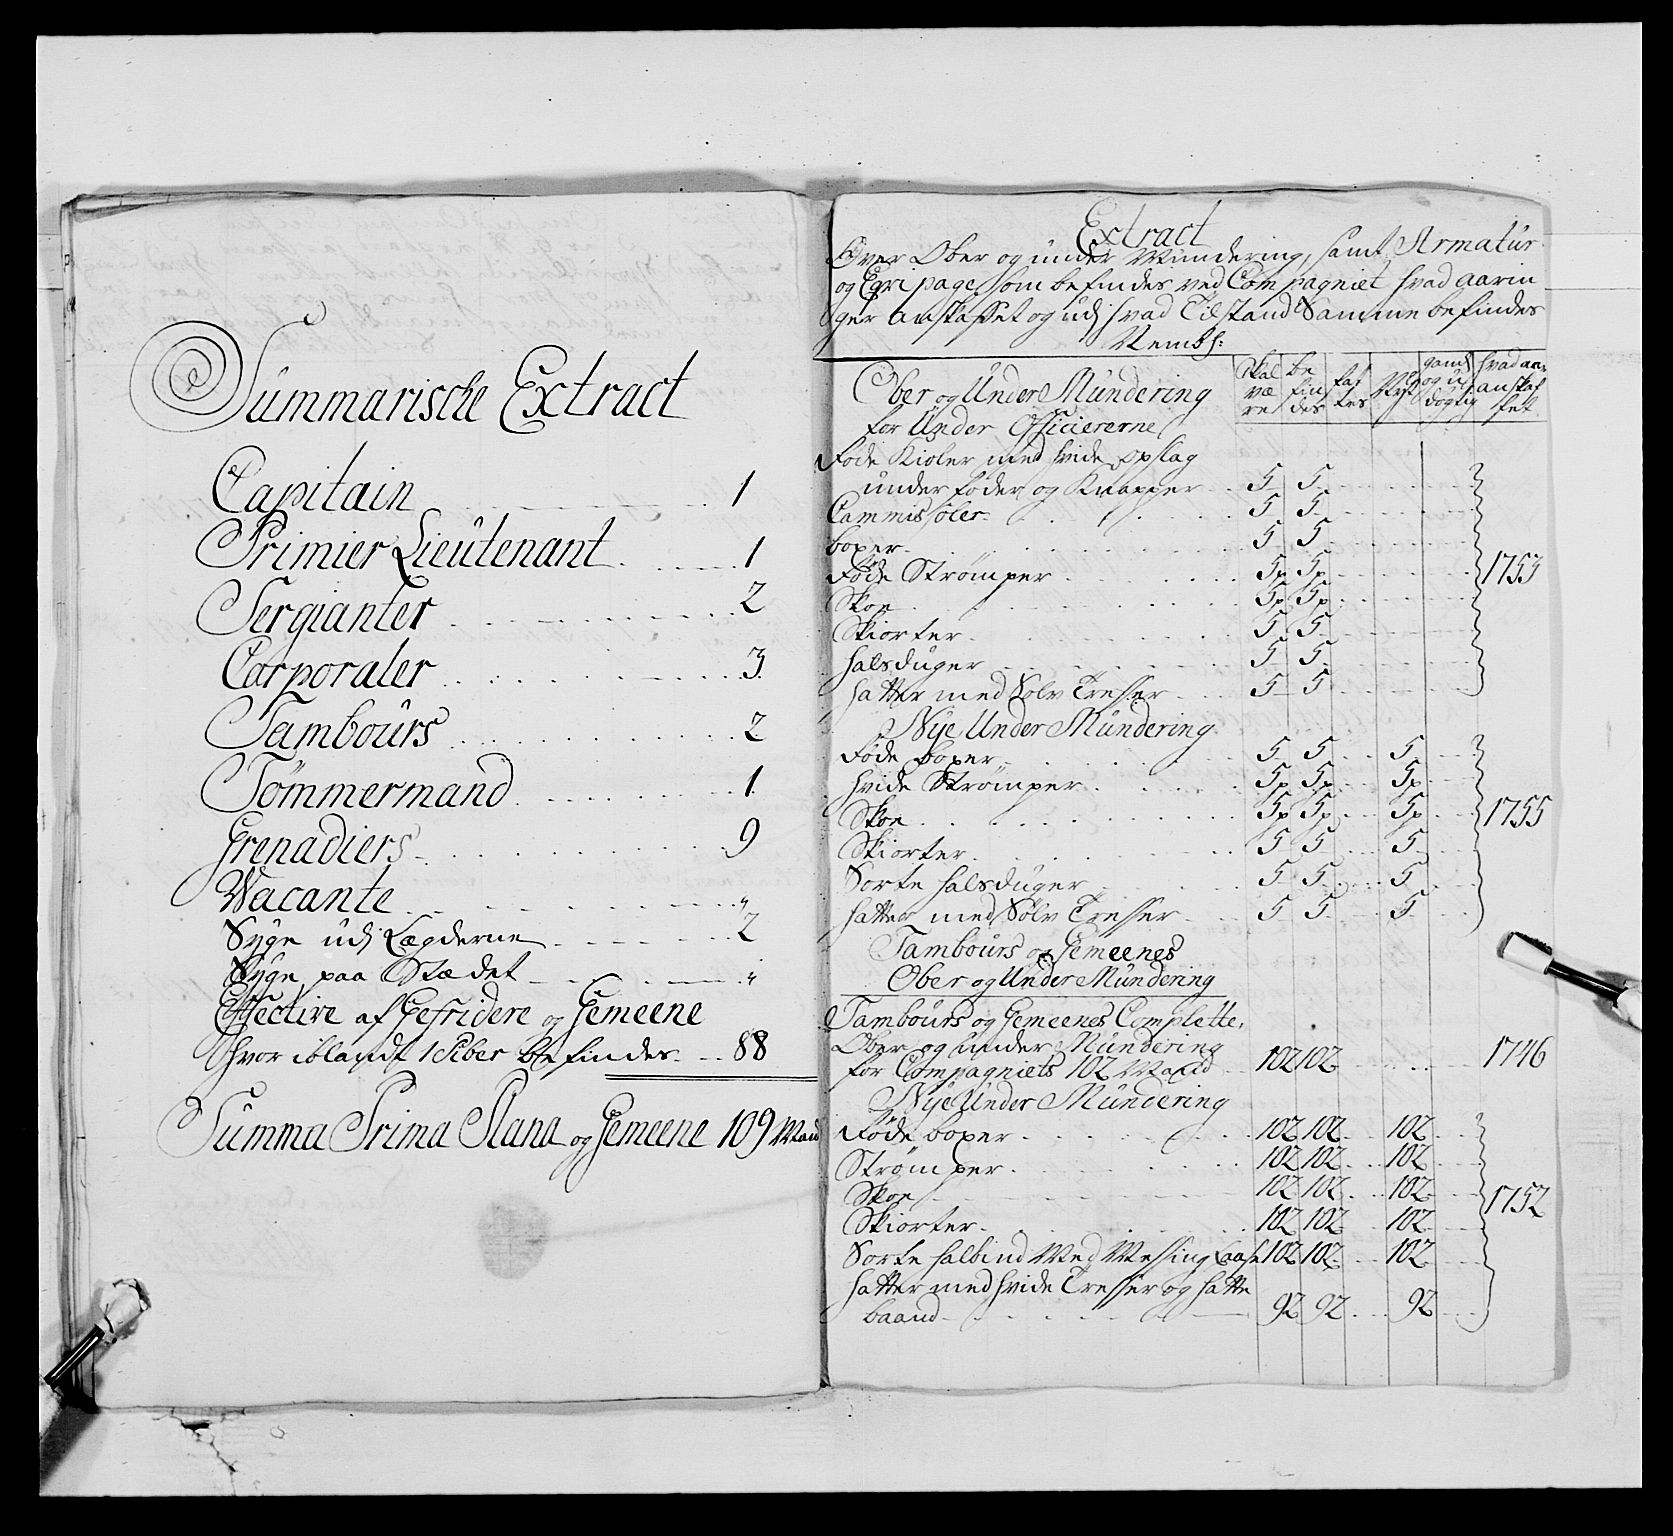 Summarische Extract
Capitain 1
Primier Lieutenant 1
Sergianter 2
Corporaler 3
Tambours 2
Tömmermand 1
Grenadiers 9
Wacante "
Syge udj Lægderne 2
Syge paa Stædet "
Effective af Gefridere og Gemeene
hvor iblandt 1 Piber befindes 88
Summa Prima Plana og Gemeene 109 Mand
Extract
Over Ober og under Mundering, samt Armatur
og Eqvipage som befindes ved Compagniet hvad aarin
ger anskaffet og udj hvad Tilstand Samme befindes
Nembl:
Ober og Under Mundering
Skal være
befindes
fattes
Nyt
gaml og udögtig
hvad aar anskaffet
for Under Officiererne
Röde Kioler med hvide opslag
under foder og Knapper 5 5
Cammisoler 5 5
boxer 5 5
Röde Strömper 5p 5p 1753
Skoe 5p 5p
Skiorter 5 5
halsduger 5 5
hatter med Sölv Tresser 5 5
Nye Under Mundering
Röde boxer 5 5 5
hvide Strömper 5p 5p 5p
Skoe 5p 5p 5p 1755
Skiorter 5 5 5
Sorte halsduger 5 5 5
hatter med Sölv Tresser 5 5 5
Tambours og Gemeenes
Ober og Under Mundering
Tambours og Gemeenes Complette
Ober og Under Mundering
for Compagniets 102 Mand 102 102 1746
Nye Under Mundering
Röde boxer 102 102 102
Strömper 102 102 102
Skoe 102 102 102 1752
Skiorter 102 102 102
Sorte halsbind Med Messing Laase 102 102 102
hatter med hvide Tresser og hatte
baand 92 92 92